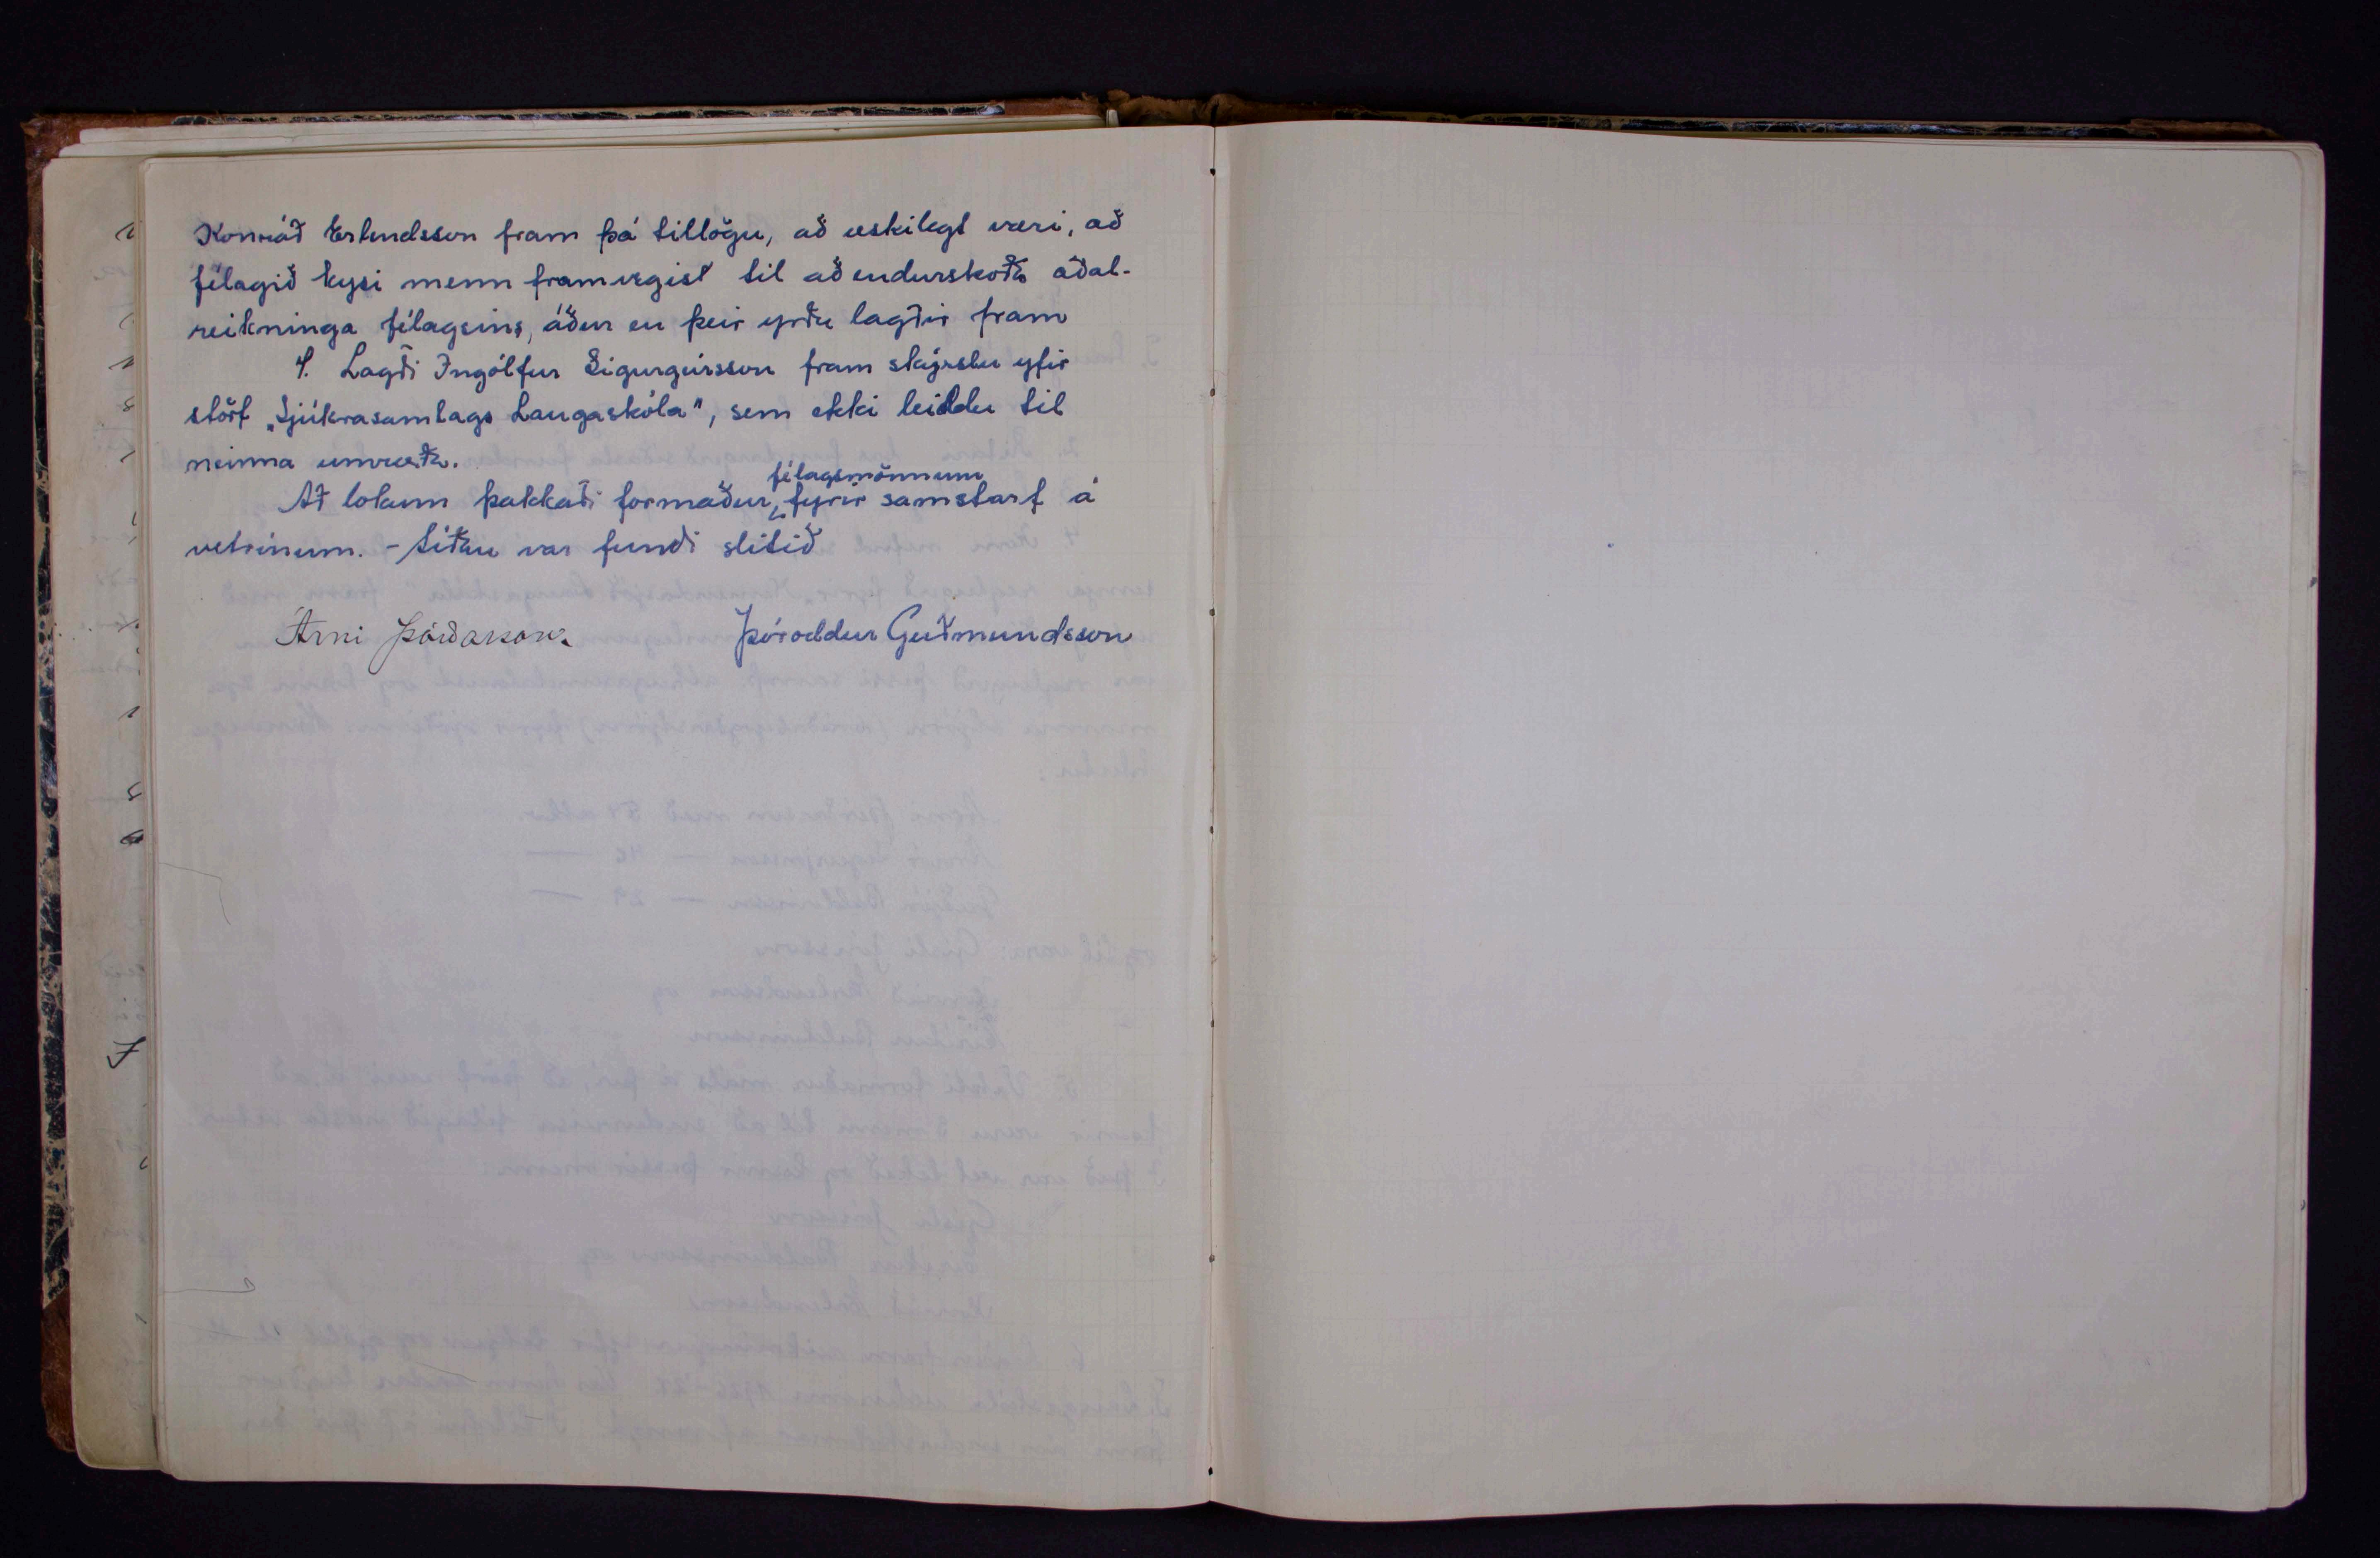 Konráð Erlendsson fram þá tillögu, að æskilegt væri, að
félagið kysi menn framvegis til að endurskoða aðal-
reikninga félagsins, áður en þeir yrðu lagðir fram
4. Lagði Ingólfur Sigurgeirsson fram skýrslu yfir
störf „Sjúkrasamlags Laugaskóla", sem ekki leiddu til
neinna umræða.
Að lokum þakkaði formaður, félagsmönnum fyrir samstarf á
vetrinum. - Síðan var fundi slitið
Árni Þórðarson. Þóroddur Guðmundsson